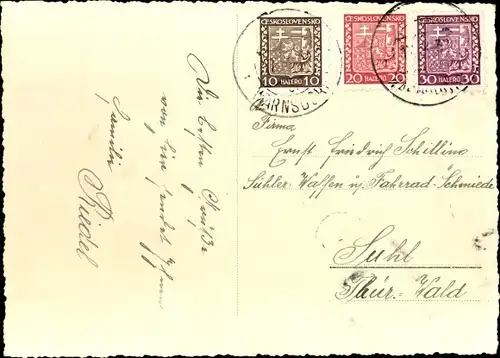 ČESKOSLOVENSKO
10 HALÉŘŮ 10
ČESKOSLOVENSKO
20 HALÉŘŮ 20
ČESKOSLOVENSKO
30 HALÉŘŮ 30
WARNSDORF
Die besten Grüße
von hier sendet Ihnen
Familie
Riedel
Firma
Ernst Friedrich Schilling
Suhler-Waffen u. Fahrrad-Schmiede
Suhl
Thür.-Wald